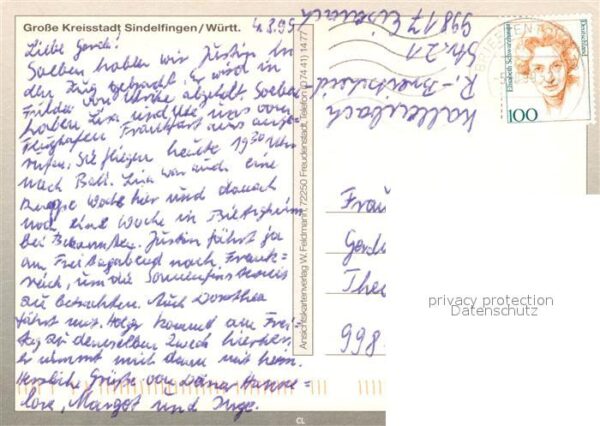 Große Kreisstadt Sindelfingen/Württ.
4.8.99
Liebe Gerda!
Soeben haben wir Justin in
den Zug gebracht. Er wird in
Fulda von Ulrike abgeholt. Soeben
haben Lisa und Ute uns vom
Flughafen Frankfurt aus ange-
rufen. Sie fliegen heute 19³⁰ Uhr
nach Bali. Lisa war auch eine
Woche hier und danach
noch eine Woche in Bietigheim
bei Bekannten. Justin fährt ja
am Freitagabend nach Frank-
reich, um die Sonnenfinsternis
zu betrachten. Auch Dorothea
fährt mit. Holger kommt am Frei-
tag zu demselben Zweck hierher.
Er nimmt mich dann mit heim.
Herzliche Grüße von Deiner Hanne-
lore, Margot und Inge.
Ansichtskartenverlag W. Feldmann, 72250 Freudenstadt, Telefon (0 74 41) 14 77
Kallenbach
R.-Breitscheid
Str. 21
99817 Eisenach
BRIEFZENTRUM
Elisabeth Schwarzhaupt
Deutschland
100
Frau
Gerda
Thea
998
privacy protection
Datenschutz
CL